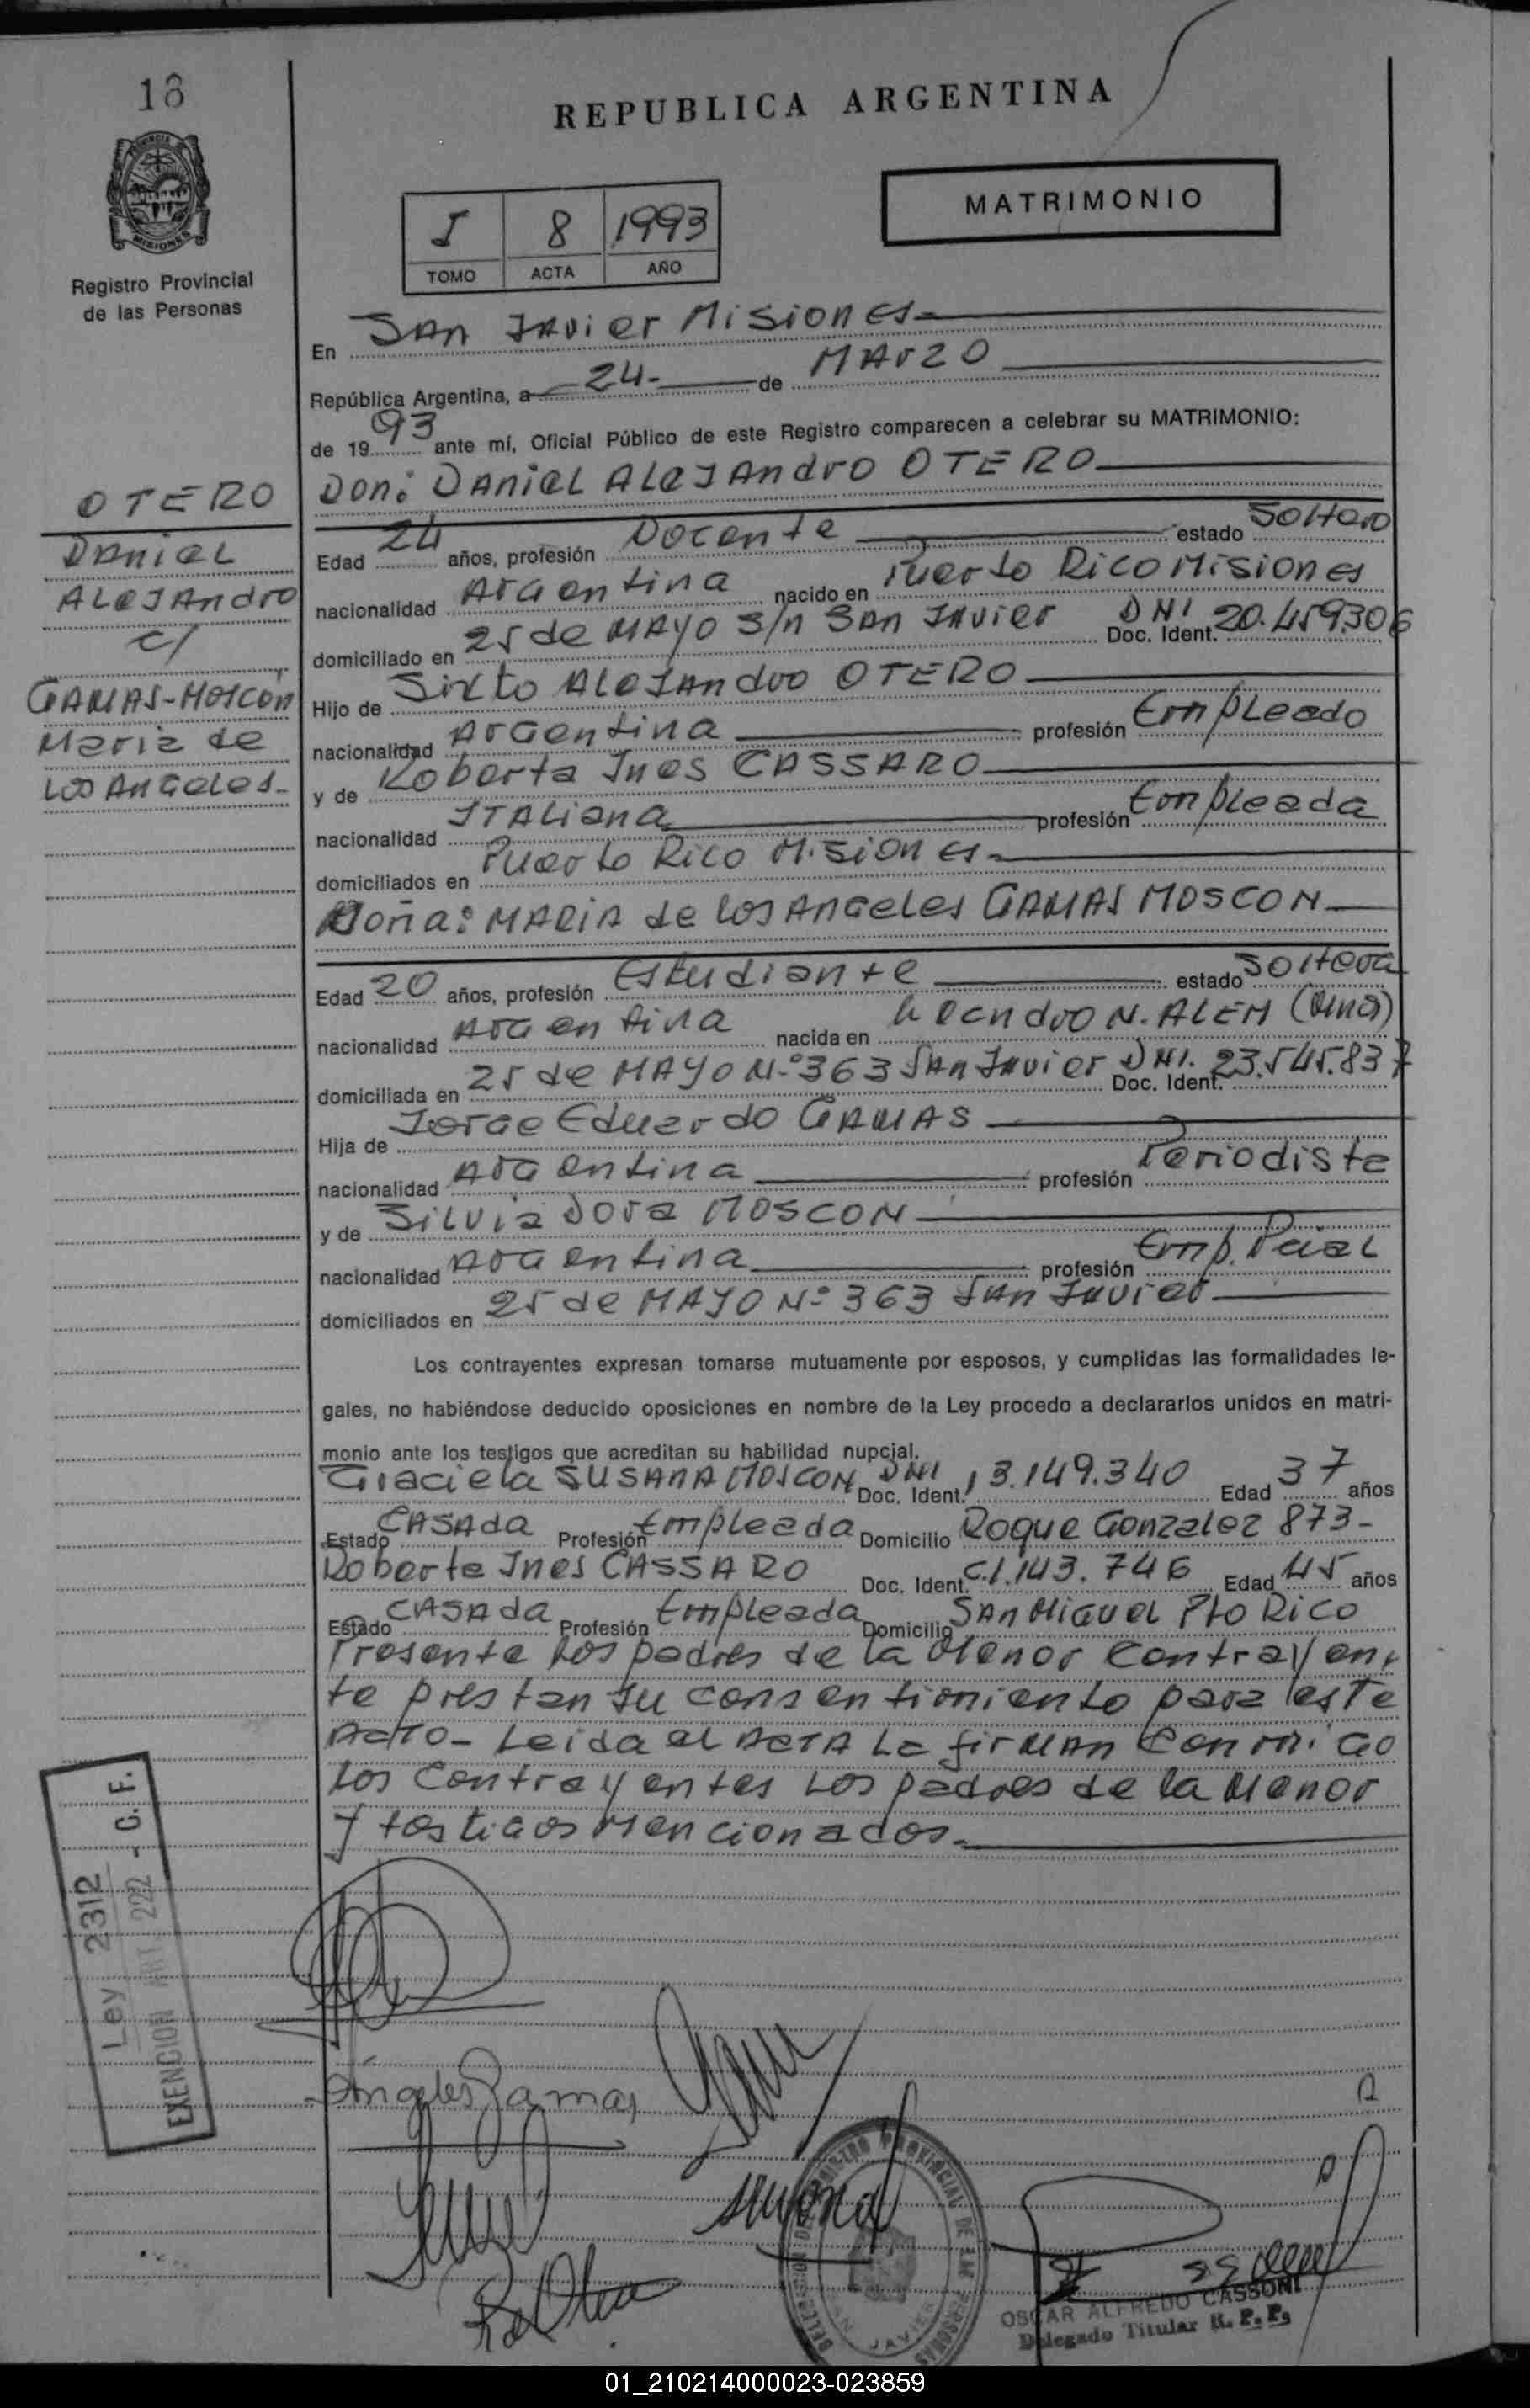 18
REPUBLICA ARGENTINA
PROVINCIA DE
MISIONES
Registro Provincial
de las Personas
MATRIMONIO
I 8 1993
TOMO ACTA AÑO
En San Javier Misiones
República Argentina, a 24 de Marzo
de 1993 ante mí, Oficial Público de este Registro comparecen a celebrar su MATRIMONIO:
Don: Daniel Alejandro OTERO
OTERO
Daniel
Alejandro
c/
GAMAS-MOSCON
Maria de
Los Angeles
Edad 24 años, profesión Docente estado Soltero
nacionalidad Argentina nacido en Puerto Rico Misiones
domiciliado en 25 de Mayo s/n San Javier Doc. Ident. DNI 20.459.306
Hijo de Sixto Alejandro OTERO
nacionalidad Argentina profesión Empleado
y de Roberta Ines CASSARO
nacionalidad Italiana profesión Empleada
domiciliados en Puerto Rico Misiones
Doña: Maria de los Angeles GAMAS MOSCON
Edad 20 años, profesión Estudiante estado Soltera
nacionalidad Argentina nacida en Leandro N. Alem (Mnes)
domiciliada en 25 de Mayo N° 363 San Javier Doc. Ident. DNI. 23.545.837
Hija de Jorge Eduardo GAMAS
nacionalidad Argentina profesión Periodista
y de Silvia Dora MOSCON
nacionalidad Argentina profesión Emp. Pcial
domiciliados en 25 de Mayo N° 363 San Javier
Los contrayentes expresan tomarse mutuamente por esposos, y cumplidas las formalidades le-
gales, no habiéndose deducido oposiciones en nombre de la Ley procedo a declararlos unidos en matri-
monio ante los testigos que acreditan su habilidad nupcial.
Graciela Susana MOSCON Doc. Ident. DNI 13.149.340 Edad 37 años
Estado Casada Profesión Empleada Domicilio Roque Gonzalez 873
Roberta Ines CASSARO Doc. Ident. C.I. 143.746 Edad 45 años
Estado Casada Profesión Empleada Domicilio San Miguel Pto Rico
Presente los padres de la menor contrayen-
te prestan su consentimiento para este
Acto- Leida el Acta la firman conmigo
los contrayentes los padres de la menor
y testigos mencionados.
Ley 2312 - C. F.
EXENCION ART 222
Angeles Gamas
OSCAR ALFREDO CASSONI
Delegado Titular R. P. P.
01_210214000023-023859